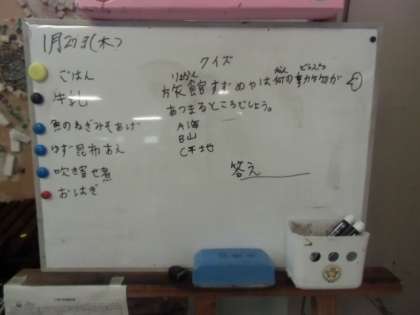 1月27日(木)
ごはん
牛乳
魚のねぎみそあげ
ゆず昆布あえ
吹き寄せ煮
おはぎ
クイズ
りょかん なん どうぶつ
旅館すずめやは何の動物が
あつまるところでしょう。
A海
B山
C木地
答え